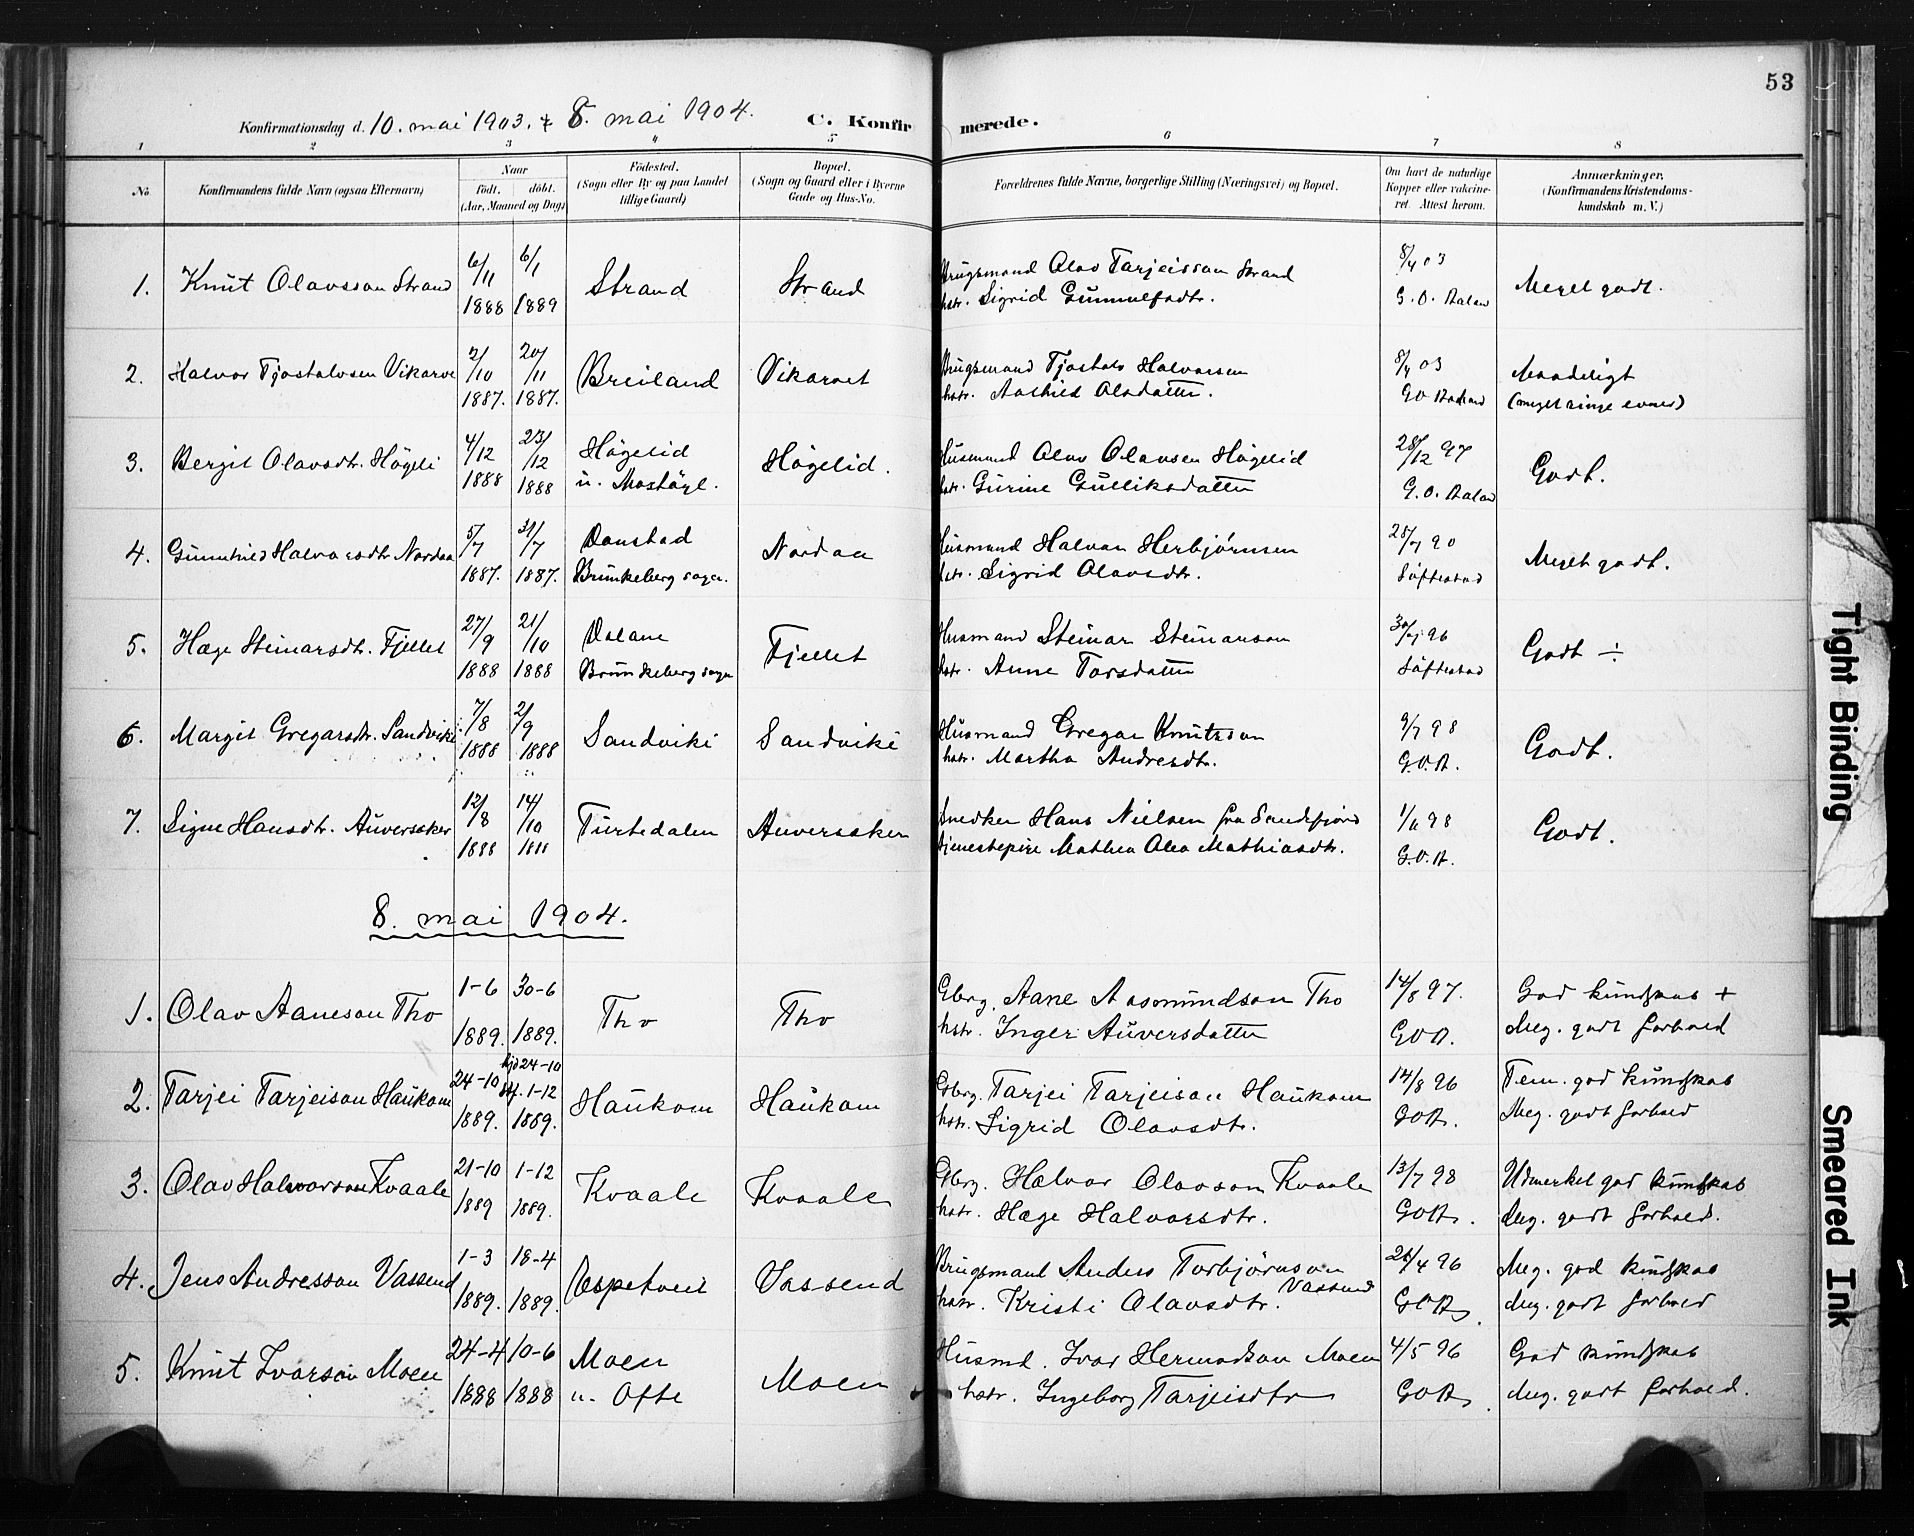 53
Konfirmationsdag d. 10. mai 1903. & 8. mai 1904. C. Konfir merede.
1 2 3 4 5 6 7 8
No. Konfirmandens fulde Navn (ogsaa Efternavn) Naar født. døbt. (Aar, Maaned og Dag) Födested. (Sogn eller By og paa Landet tillige Gaard) Bopæl. (Sogn og Gaard eller i Byerne Gade og Hus-No. Forældrenes fulde Navne, borgerlige Stilling (Næringsvei) og Bopæl. Om havt de naturlige Kopper eller vakcine-ret. Attest herom. Anmærkninger. (Konfirmandens Kristendoms-kundskab m. V.)
1. Knut Olavsson Strand 6/11 1888 6/1 1889 Strand Strand Brugsmand Olav Tarjeisson Strand 8/4 03 Meget godt.
hstr. Sigrid Gunnulfsdtr. G. O. Aaland
2. Halvor Tjostolvsen Vikarve 2/10 1887. 20/11 1887. Breiland Vikarvet Brugsmand Tjostolv Halvorsen 8/4 03 Maadeligt
hstr. Aashild Olsdatter. GO Aaland (meget ringe evner)
3. Bergit Olavsdtr. Högeli 4/12 1888 23/12 1888 Högelid u. Mostögl. Högelid. Husmand Olav Olavsen Högelid 28/12 97 Godt.
hstr. Gurine Gulliksdatter G. O. Aaland
4. Gunnhild Halvorsdtr Nordaa 5/7 1887. 31/7 1887. Brunkeberg sogn. Nordaa Husmand Halvor Herbjørnsen 25/7 90 Meget godt.
hstr. Sigrid Olavsdtr. Söftestad
5. Hæge Steinarsdtr. Fjellet 27/9 1888 21/10 1888 Dalane Brunkeberg sogn Fjellet Husmand Steinar Steinarson Godt ÷
hstr. Anne Torsdatter Söftestad
6. Margit Gregarsdtr. Sandviki 7/8 1888 2/9 1888 Sandviki Sandviki Husmand Gregar Knutsson 9/7 98 Godt.
hstr. Martha Andresdtr. G.O.A.
7. Signe Hansdtr. Auversaker 12/8 1888 14/10 1888 Turtedalen Auversaker Snedker Hans Nielsen fra Sandefjord 98 Godt.
tjenestepige Mathea Olea Mathiasdtr. G.O.A.
8. mai 1904.
1. Olav Aaneson Tho 1-6 1889. 30-6 1889. Tho Tho Gbrg. Aane Aasmundson Tho 14/8 97. God kundskab +
hstr. Inger Auversdatter GOA. Meg. godt forhold
2. Tarjei Tarjeison Haukom 24-10 1889. hjd 24-10 stf. 1-12 1889. Haukom Haukom Gbrg. Tarjei Tarjeison Haukom 14/8 96 Tem. god kundskab
hstr. Sigrid Olavsdtr. GOA. Meg. godt forhold
3. Olav Halvorson Kvaale 21-10 1889 1-12 1889. Kvaale Kvaale Gbrg. Halvor Olavson Kvaale 13/7 98 Udmerket god kundskab
hstr. Hæge Halvorsdtr. GOA. Meg. godt forhold.
4. Jens Andresson Vassend 1-3 1889. 18-4 1889. Espetveit Vassend Brugsmand Anders Torbjörnson Vassend 26/4 96 Meg. god kundskab
hstr. Kristi Olavsdtr. GOA. Meg. godt forhold
5. Knut Ivarson Moen 24-4 1888 10-6 1888 Moen u. Ofte Moen Husmd. Ivar Hermodson Moen 4/5 96 God kundskab
hstr. Ingeborg Tarjeisdtr GOA. Meg. godt forhold.
Tight Binding
Smeared Ink